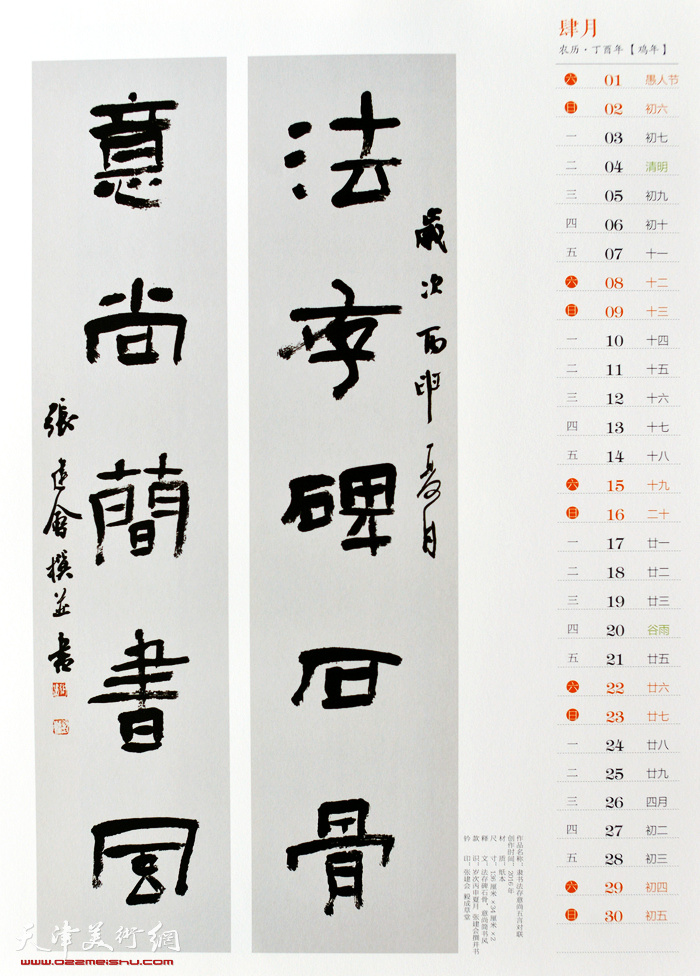 法存碑石骨
歲次丙申夏月
意尚簡書風
張建會撰並書
肆月
农历·丁酉年【鸡年】
六 01 愚人节
日 02 初六
一 03 初七
二 04 清明
三 05 初九
四 06 初十
五 07 十一
六 08 十二
日 09 十三
一 10 十四
二 11 十五
三 12 十六
四 13 十七
五 14 十八
六 15 十九
日 16 二十
一 17 廿一
二 18 廿二
三 19 廿三
四 20 谷雨
五 21 廿五
六 22 廿六
日 23 廿七
一 24 廿八
二 25 廿九
三 26 四月
四 27 初二
五 28 初三
六 29 初四
日 30 初五
作品名称：隶书法存意尚五言对联
创作时间：2016年
材 质：纸本
尺 寸：136厘米×34厘米×2
释 文：法存碑石骨，意尚简书风
款 识：岁次丙申夏月 张建会撰并书
钤 印：张建会
天津美術網
www.022meishu.com